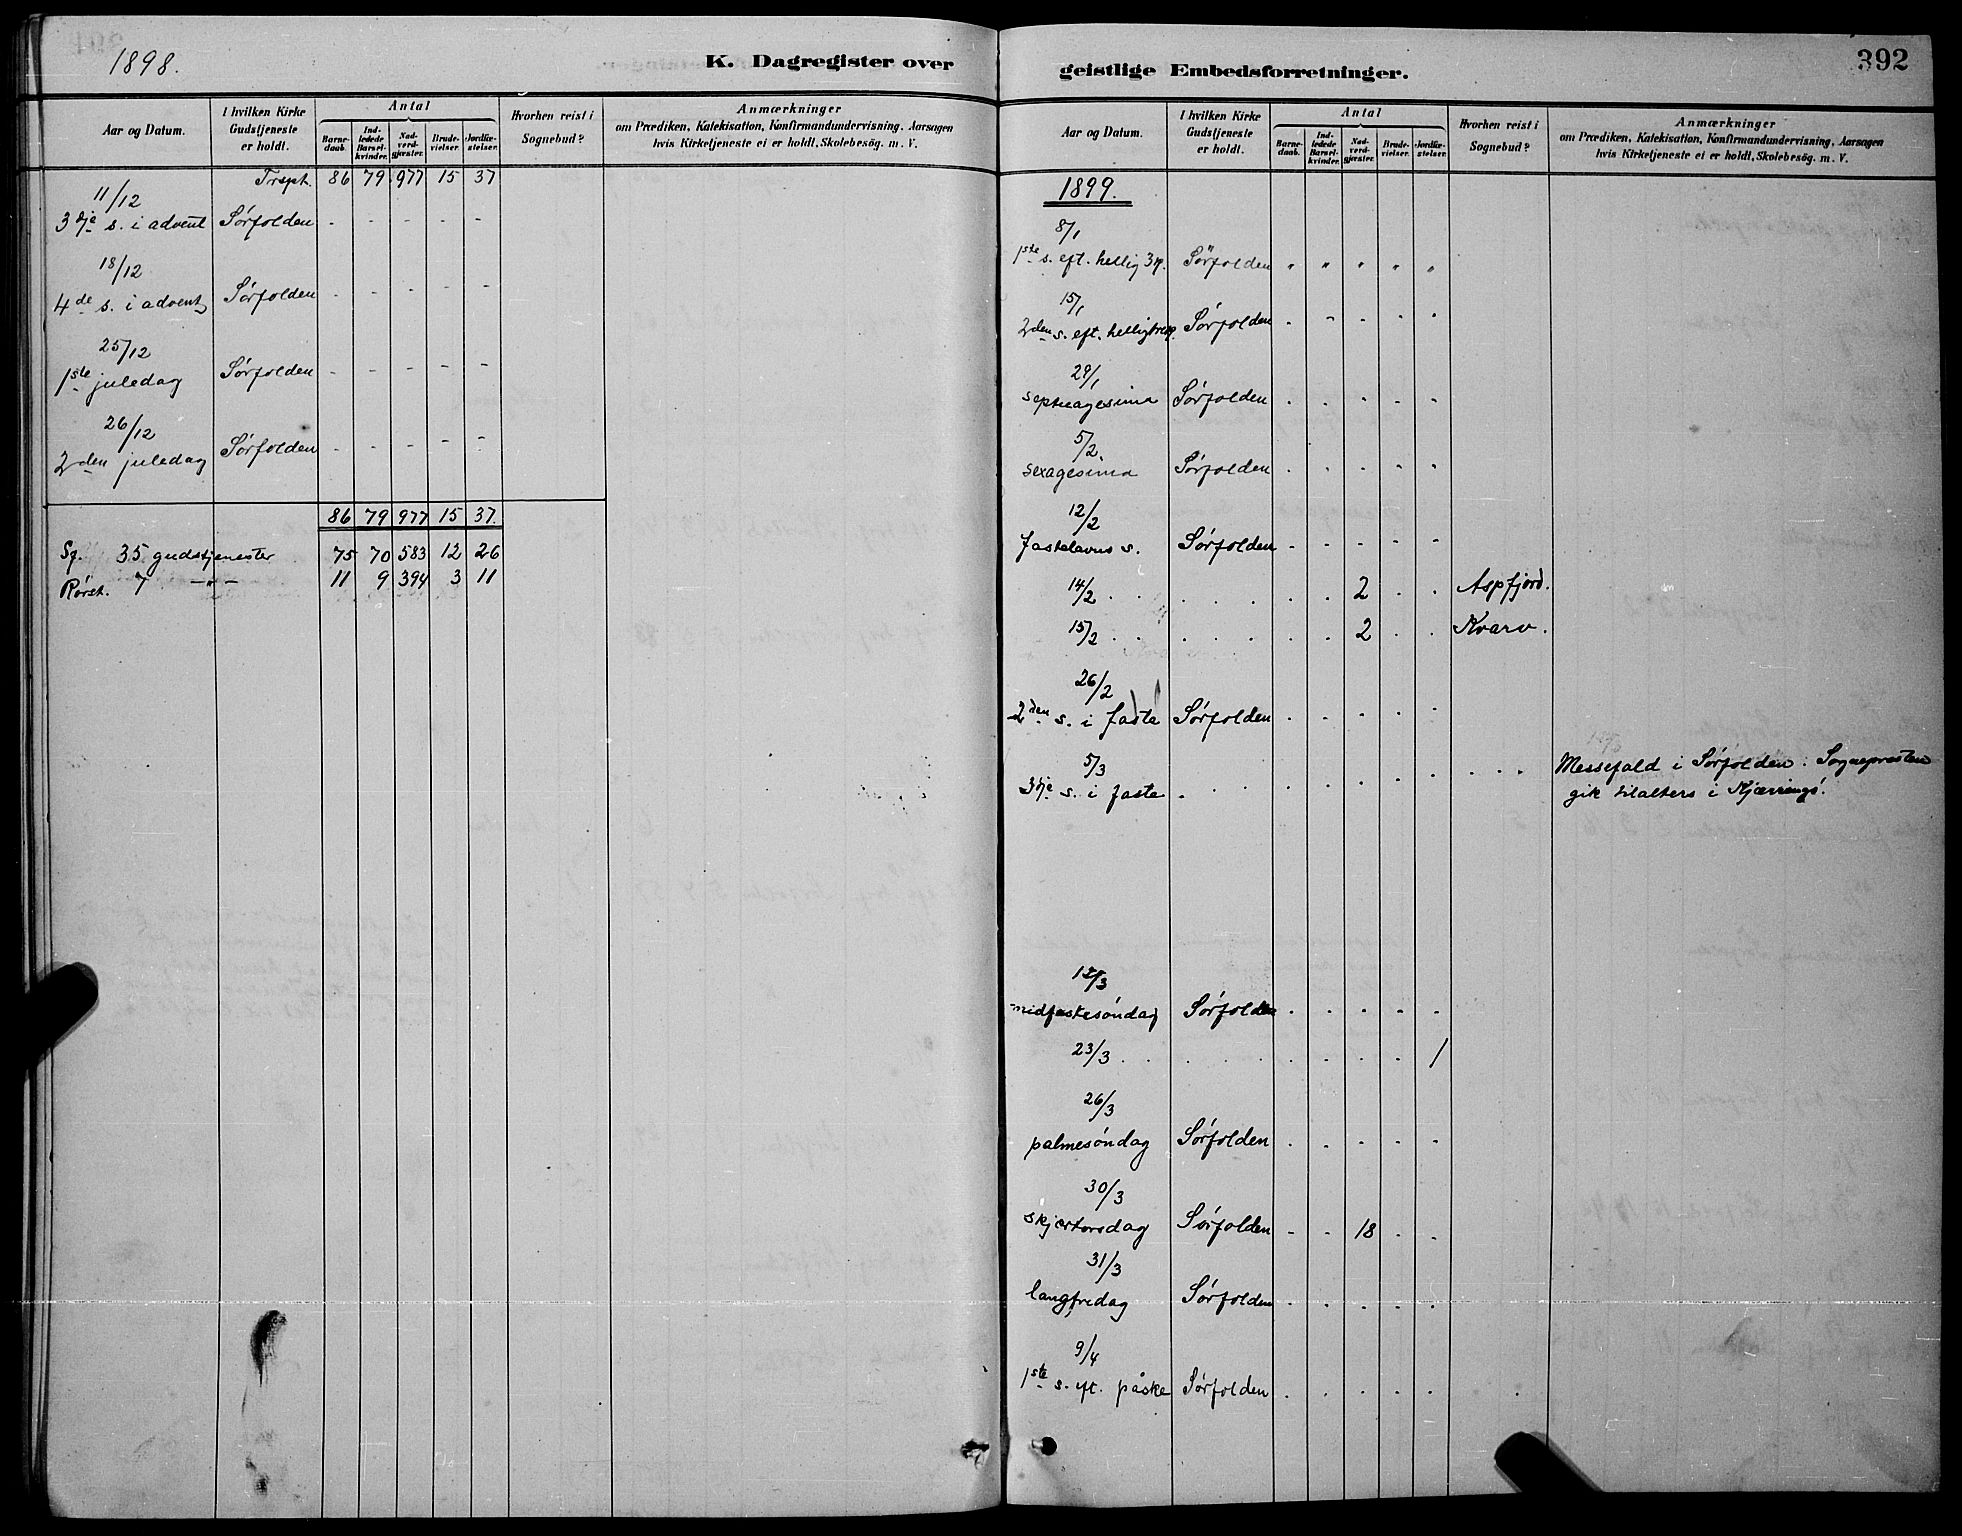 1898.
K. Dagregister over
Aar og Datum.
I hvilken Kirke Gudstjeneste er holdt.
Antal
Barne-daab.
Ind-ledede Barsel-kvinder.
Nad-verd-gjæster.
Brude-vielser.
Jordfæ-stelser.
Hvorhen reist i Sognebud?
Anmærkninger
om Prædiken, Katekisation, Konfirmandundervisning, Aarsagen
hvis Kirketjeneste ei er holdt, Skolebesög. m. V.
Trspt. 86 79 977 15 37
11/12
3dje s. i advent Sørfolden - - - - -
18/12
4de s. i advent Sørfolden - - - - -
25/12
1ste juledag Sørfolden - - - - -
26/12
2den juledag Sørfolden - - - - -
86 79 977 15 37.
Sf. 35 gudstjenester 75 70 583 12 26
Rørst. 7 -"- 11 9 394 3 11
geistlige Embedsforretninger.
392
Aar og Datum.
I hvilken Kirke Gudstjeneste er holdt.
Antal
Barne-daab.
Ind-ledede Barsel-kvinder.
Nad-verd-gjæster.
Brude-vielser.
Jordfæ-stelser.
Hvorhen reist i Sognebud?
Anmærkninger
om Prædiken, Katekisation, Konfirmandundervisning, Aarsagen
hvis Kirketjeneste ei er holdt, Skolebesög. m. V.
1899.
8/1
1ste s. eft. hellig 3k. Sørfolden " " " " "
15/1
2den s. eft. helligtrek. Sørfolden . . . . .
29/1
septuagesima Sørfolden . . . . .
5/2.
sexagesima Sørfolden . . . . .
12/2
fastelavns s. Sørfolden . . . . .
14/2 . . . . . . . . 2 . . Aspfjord.
15/2 . . . . . . . . 2 . . Kvarv.
26/2
2den s. i faste Sørfolden . . . . .
5/3
3dje s. i faste . . . . . . . . . . . . Messefald i Sørfolden: Sognepresten
gik tilalters i Kjærringø.
12/3
midfastesøndag Sørfolden . . . . .
23/3 . . . . . . . . . . 1
26/3
palmesøndag Sørfolden . . . . .
30/3
skjærtorsdag Sørfolden - - 18 . .
31/3
langfredag Sørfolden . . . . .
9/4
1ste s. eft. påske Sørfolden . . . . .